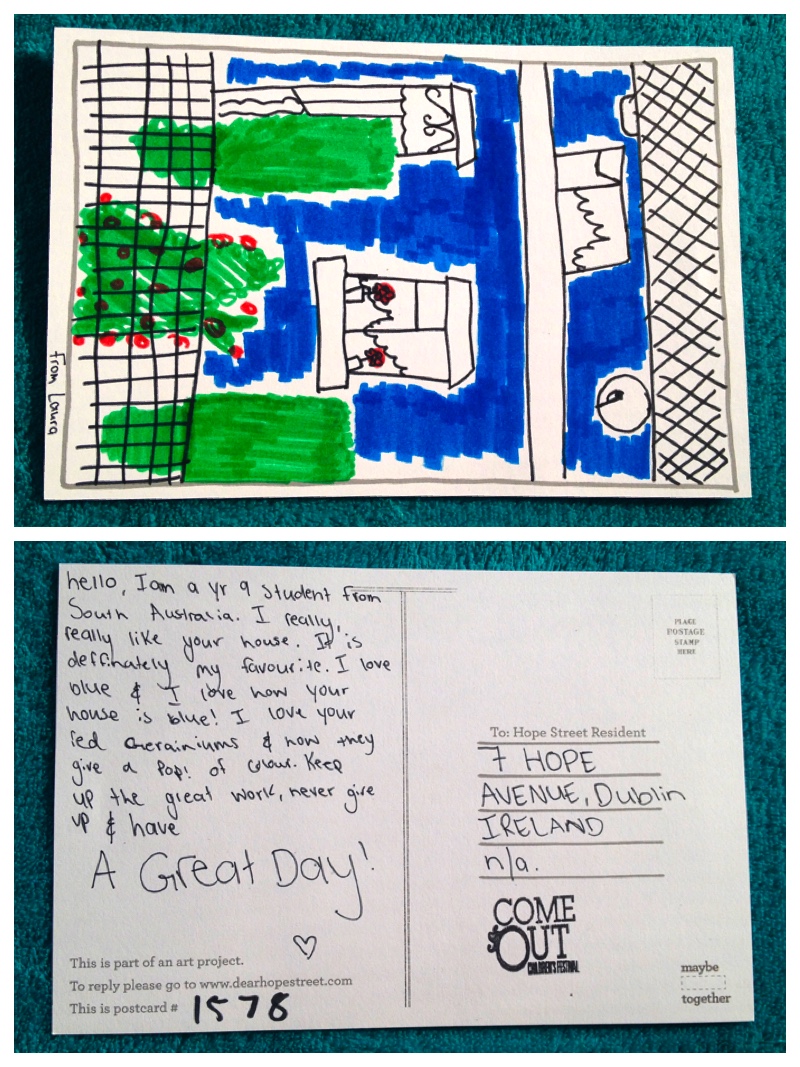 From Laura
hello, I am a yr 9 student from
South Australia. I really,
really like your house. It is
deffinately my favourite. I love
blue & I love how your
house is blue! I love your
red Gerainiums & how they
give a Pop! of colour. Keep
up the great work, never give
up & have
A Great Day!
This is part of an art project.
To reply please go to www.dearhopestreet.com
This is postcard # 1578
PLACE
POSTAGE
STAMP
HERE
To: Hope Street Resident
7 HOPE
AVENUE, Dublin
IRELAND
n/a.
COME
OUT
CHILDREN'S FESTIVAL
maybe
together